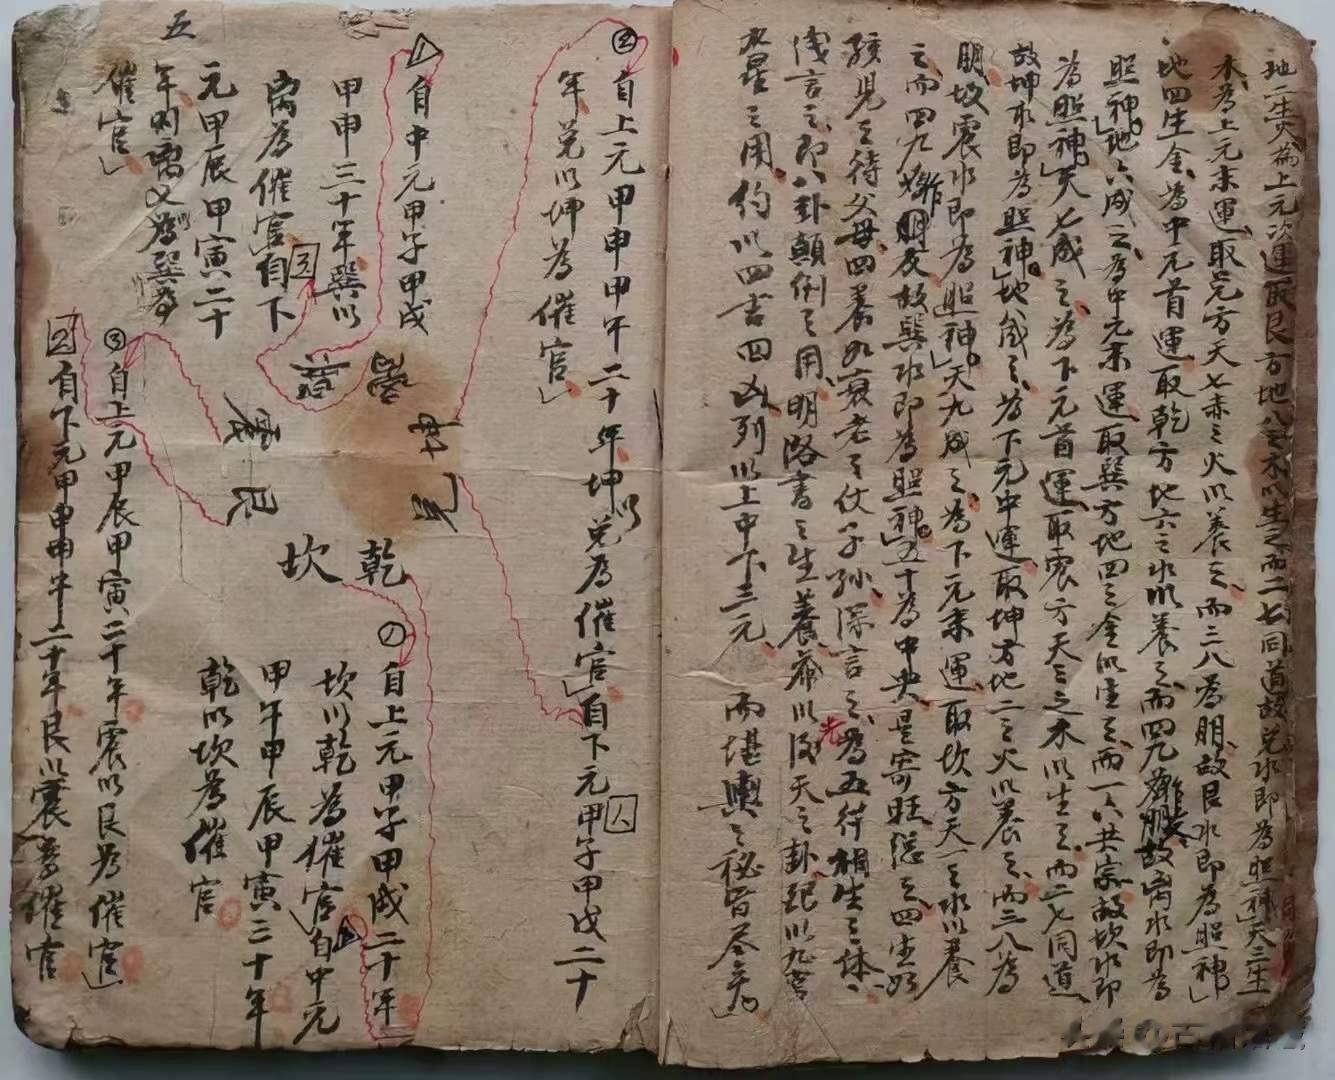 地二生火為上元次運取艮方地八之木以生之而二七同道故兌水即為照神」天三生
木為上元末運取兌方天七赤之火以養之而三八為朋故艮水即為照神」
地四生金為中元首運取乾方地六之水以養之而四九為朋故离水即為
照神」地六成之為中元末運取巽方地四之金以生之而一六共宗故坎水即
為照神」天七成之為下元首運取震方天三之木以生之而二七同道
故坤水即為照神」地八成之為下元中運取坤方地二之火以養之而三八為
朋故震水即為照神」天九成之為下元末運取坎方天一之水以養
之而四九作朋友故巽水即為照神」五十為中央是寄旺德之四生如
孩兒之待父母四養如衰老之仗子孫深言之為五行相生之体
淺言之即八卦顛倒之用明洛書之生養恭以後天之卦配以九宮
九星之用約以四吉四凶列以上中下三元 而堪輿之秘旨尽矣」
五
②自上元甲申甲午二十年坤以兌為催官」自下元甲子甲戌二十
年兌以坤為催官」
八
1自中元甲子甲戌
甲申三十年巽以
离為催官」自下
元甲辰甲寅二十
年則离又為巽為
催官」
3
离
巽
坤
兌
震
艮
坎 乾
①自上元甲子甲戌二十年
坎以乾為催官」自中元
甲午甲辰甲寅三十年
乾以坎為催官
③自上元甲辰甲寅二十年震以艮為催官」
2自下元甲申甲午二十年艮以震為催官